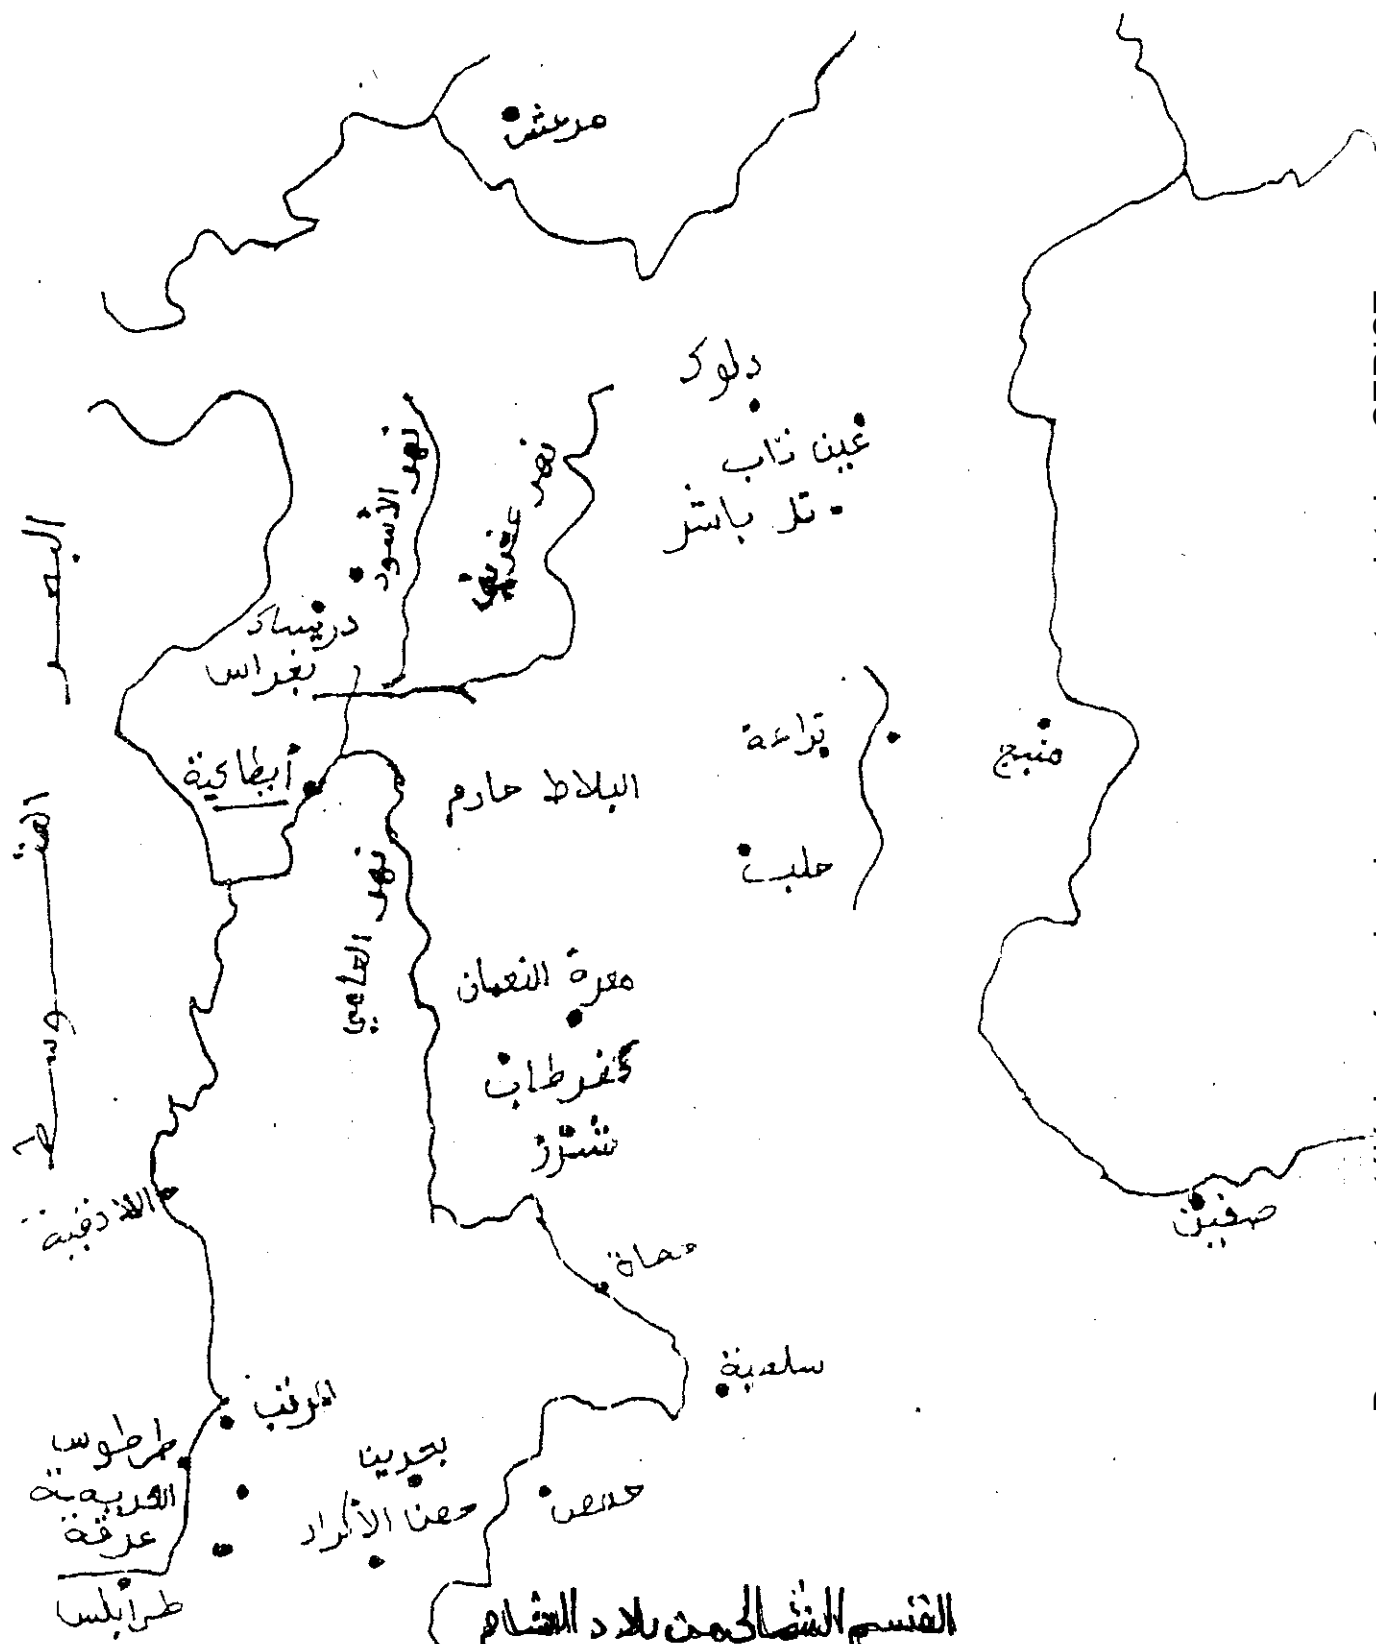 مرعش
دلوك
عين تاب
تل باشر
نهر الأسود
نهر عفرين
دربساك
بغراس
البحر
المتوسط
أنطاكية
البلاط حارم
بزاعة
منبج
حلب
نهر العاصي
معرة النعمان
كفر طاب
شيزر
اللاذقية
صفين
حماة
سلمية
المرقب
طرطوس
بعرينا
حصن الأكراد
حمص
العريمة
عرقة
طرابلس
القسم الشمالي من بلاد الشام